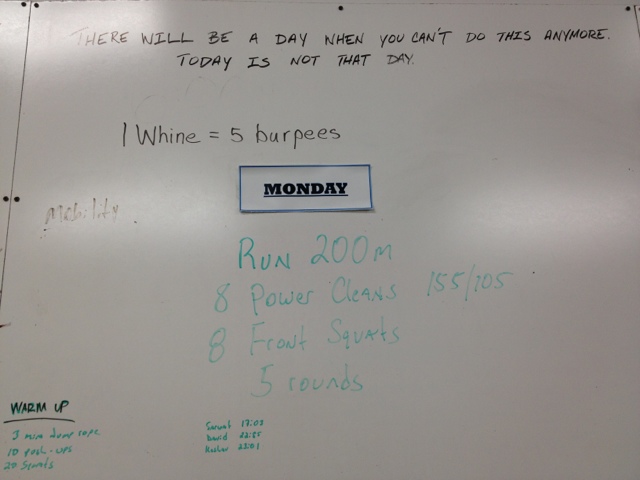 THERE WILL BE A DAY WHEN YOU CAN'T DO THIS ANYMORE.
TODAY IS NOT THAT DAY.
1 Whine = 5 burpees
MONDAY
Mobility
RUN 200m
8 Power Cleans 155/105
8 Front Squats
5 rounds
WARM UP
3 min jump rope
10 push-ups
20 Squats
17:03
David